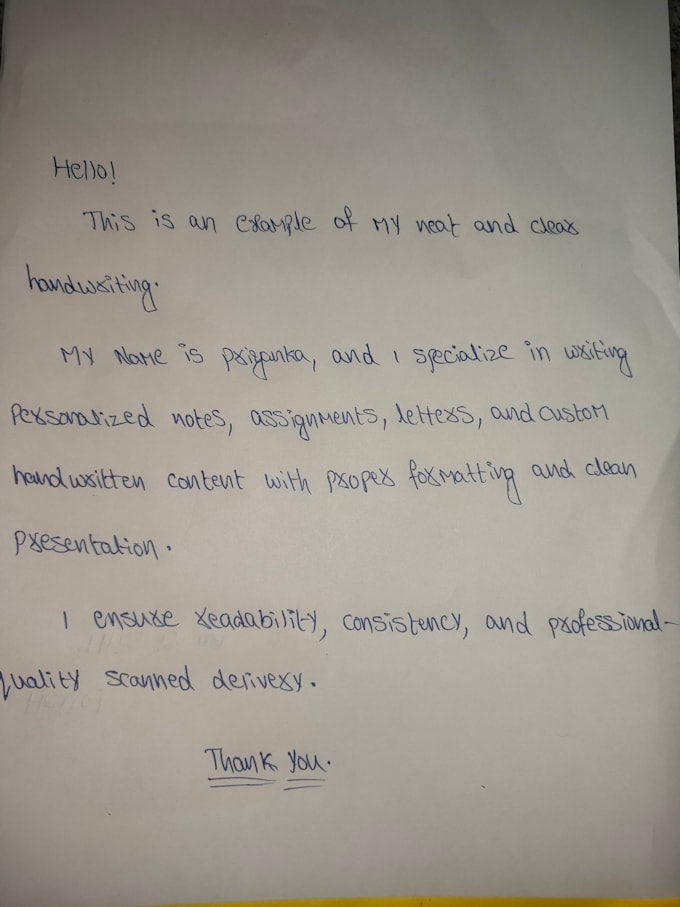 Hello!
This is an example of my neat and clear
handwriting.
My Name is priyanka, and I specialize in writing
personalized notes, assignments, letters, and custom
handwritten content with proper formatting and clean
presentation.
I ensure readability, consistency, and professional-
quality scanned derivery.
Thank you.